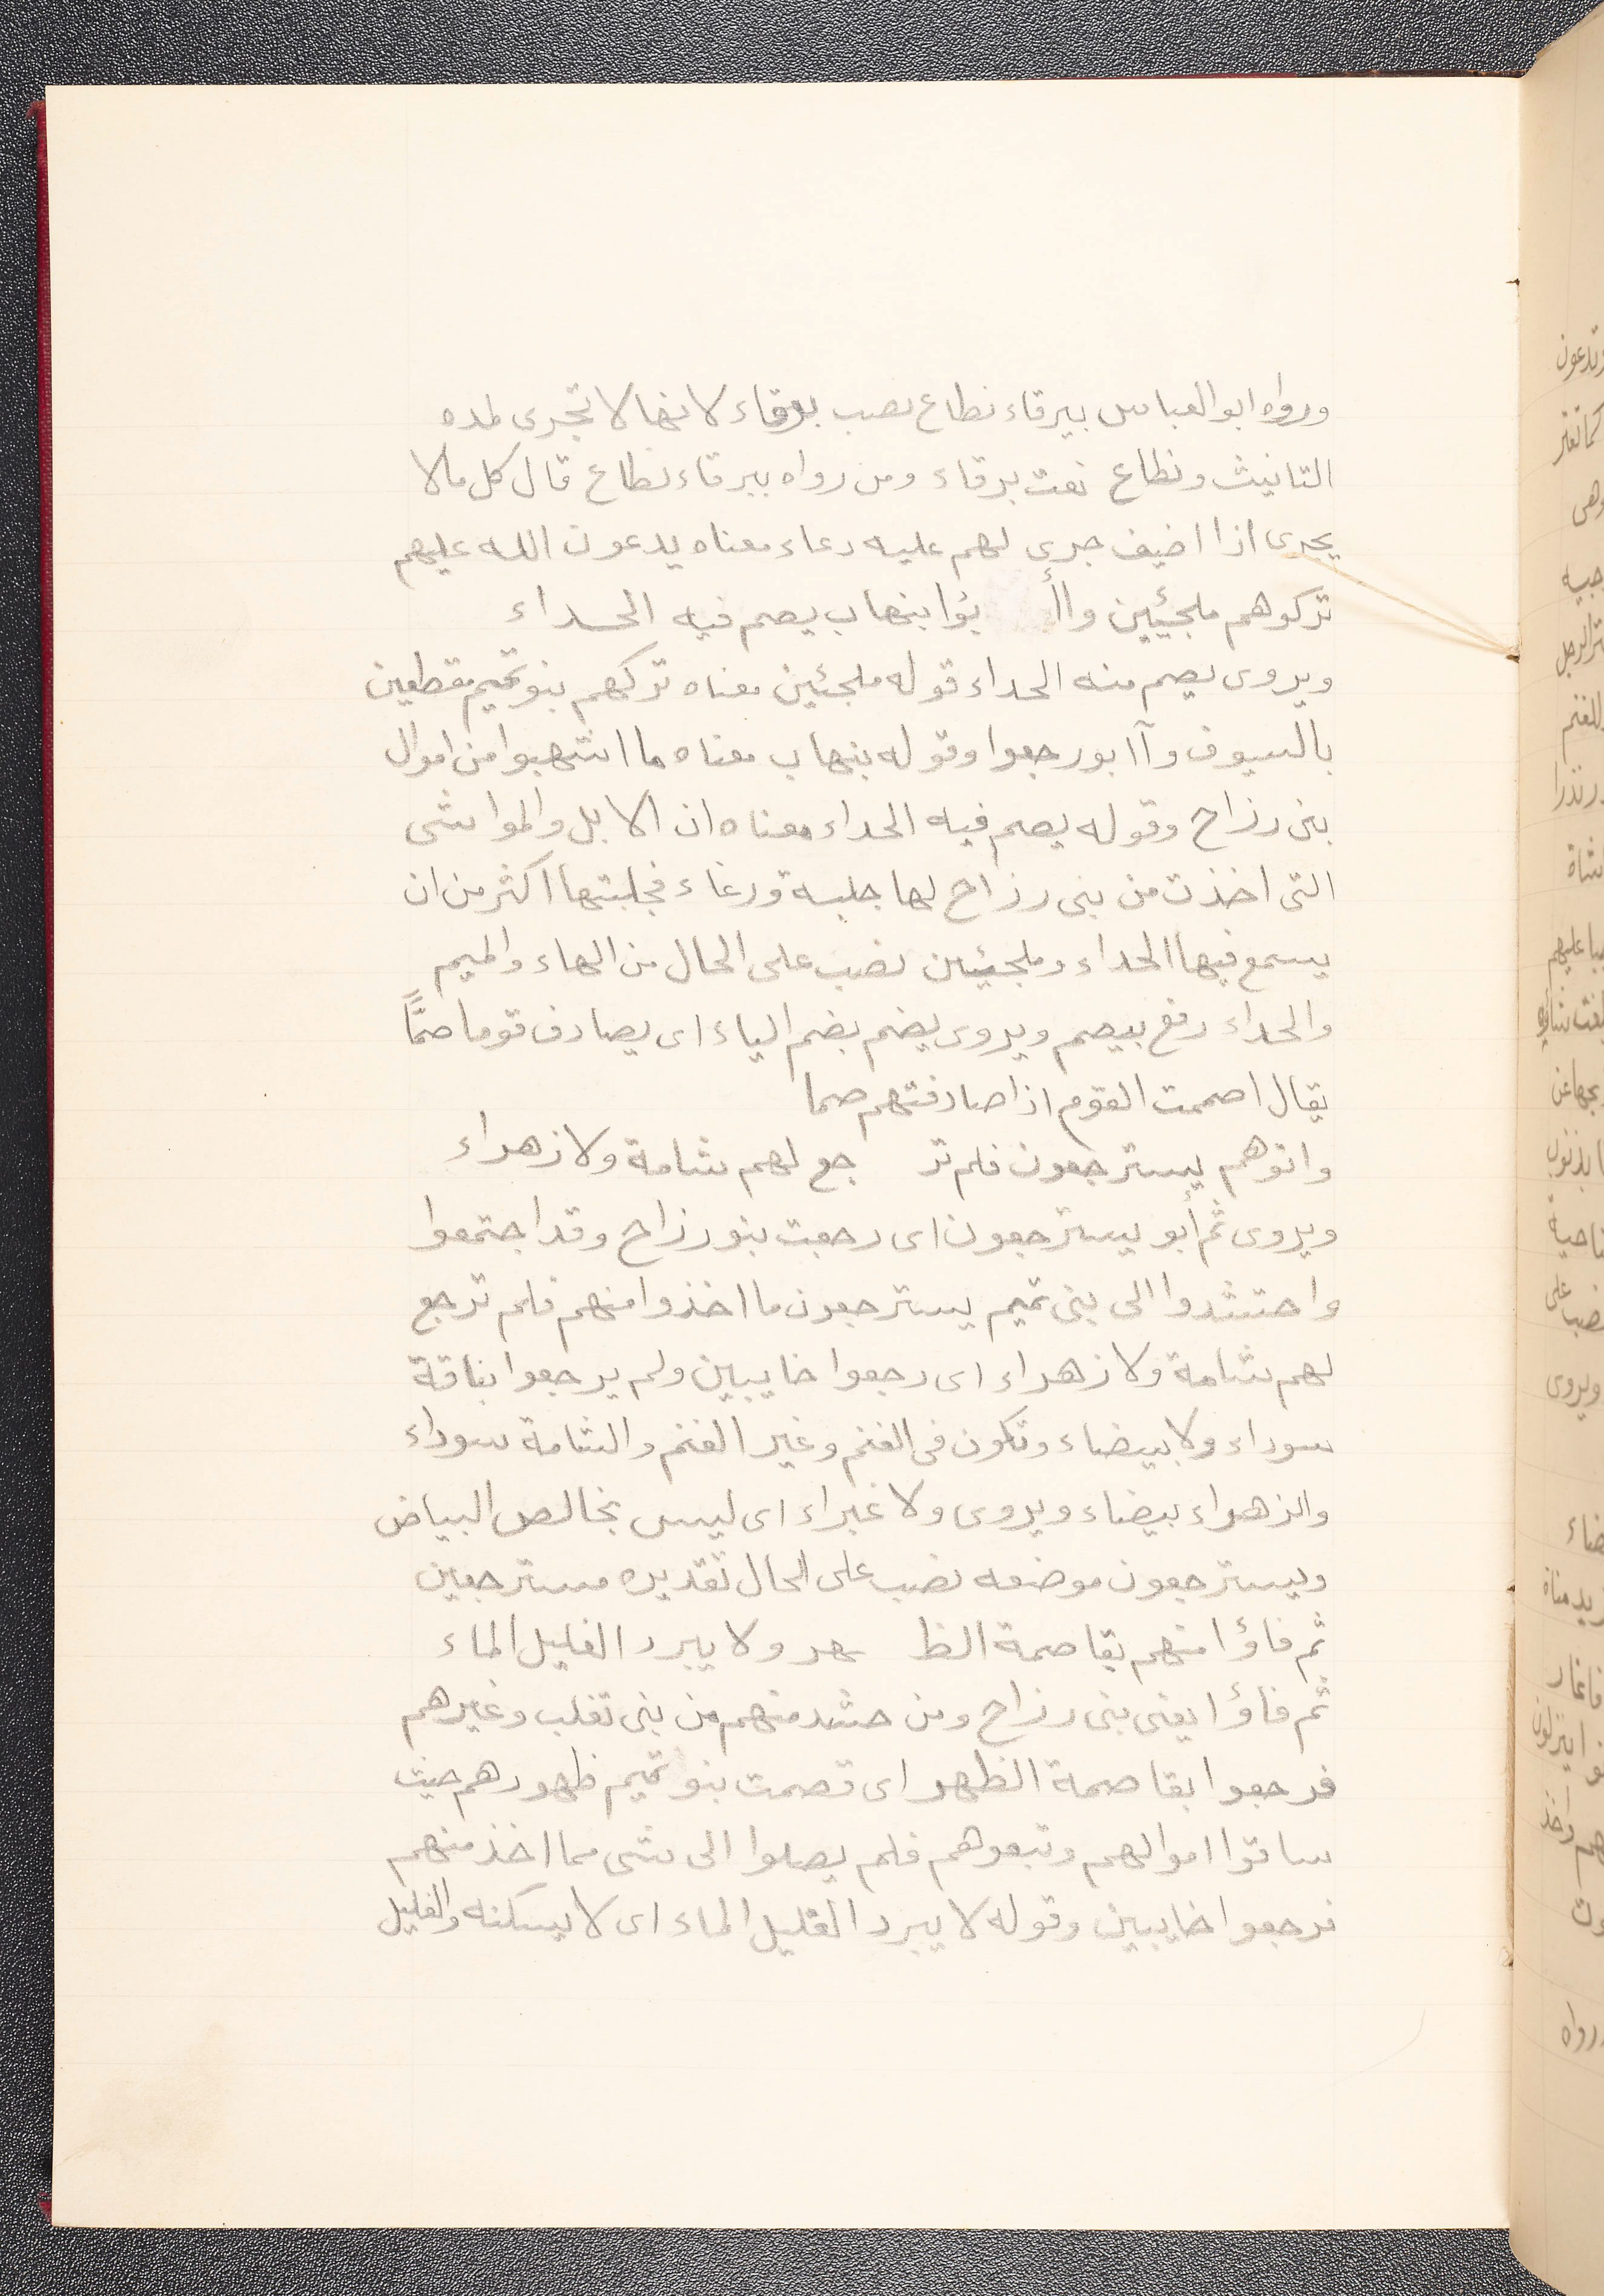 ورواه ابو العباس ببرقاء نطاع نصب برقاء لانها لا تجرى لمده
التانيث ونطاع نعت برقاء ومن رواه ببرقاء نطاع قال كل ما لا
يجرى اذا اضيف جرى لهم عليه دعاء معناه يدعون الله عليهم
تركوهم ملجيئين وأا بؤا بنهاب يصم فيه الحداء
ويروى يصم منه الحداء قوله ملجئين معناه تركهم بنو تميم مقطعين
بالسيوف وآابو رجعوا وقوله بنهاب معناه ما انتهبوا من اموال
بنى رزاح وقوله يصم فيه الحداء معناه ان الابل والمواشى
التى اخذت من بنى رزاح لها جلبة ورغاء فجلبتها اكثر من ان
يسمع فيها الحداء وملجيئين نصب على الحال من الهاء والميم
والحداء رفع بيصم ويروى يضم بضم الياء اى يصادف قوما صمًّا
يقال اصممت القوم اذا صادفتهم صما
واتوهم يسترجعون فلم تر جع لهم شامة ولا زهراء
ويروى ثم أبو يسترجعون اى رجعت بنو رزاح وقد اجتمعوا
واحتشدوا الى بنى تميم يسترجعون ما اخذوا منهم فلم ترجع
لهم شامة ولا زهراء اى رجعوا خايبين ولم يرجعوا بناقة
سوداء ولا بيضاء وتكون فى الغنم وغير الغنم والشامة سوداء
والزهراء بيضاء ويروى ولا غبراء اى ليس بخالص البياض
ويسترجعون موضعه نصب على الحال تقديره مسترجعين
ثم فاؤا منهم بقاصمة الظ هر ولا يبرد الغليل الماء
ثم فاؤا يعنى بنى رزاح ومن حشد منهم من بنى تغلب وغيرهم
فرجعوا بقاصمة الظهر اى قصمت بنو تميم ظهورهم حيث
ساقوا اموالهم وتبعوهم فلم يصلوا الى شى مما اخذ منهم
فرجعوا خايبين وقوله لا يبرد الغليل الماء اى لا يسكنه والغليل